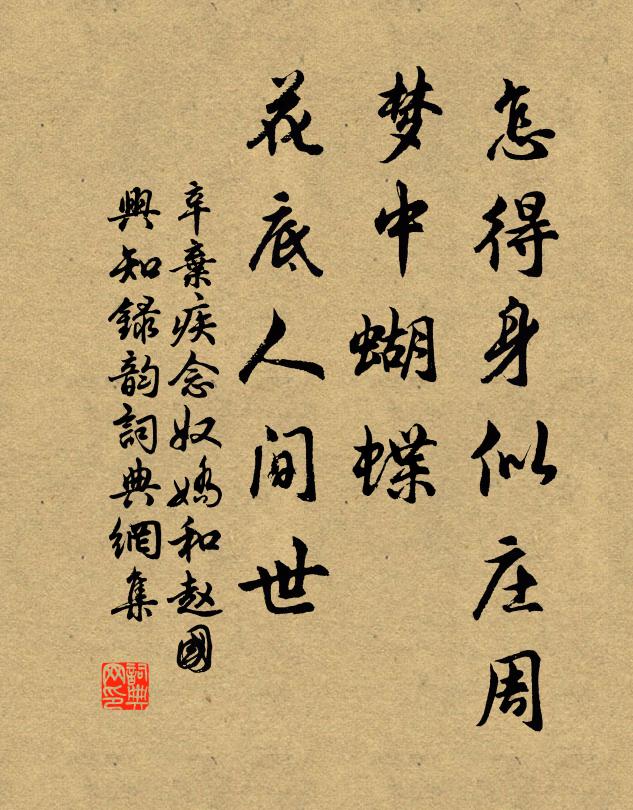 怎得身似庄周
梦中蝴蝶
花底人间世
辛棄疾念奴嬌和赵國
興知録韵詞典網集
詞典
网印